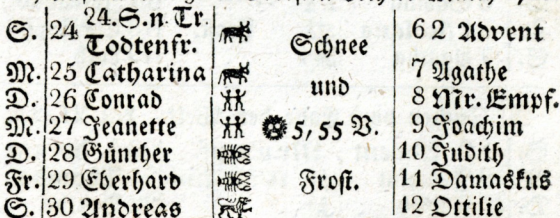 S. 24 24. S. n. Tr. Todtenfr. Schnee 6 2 Advent
M. 25 Catharina 7 Agathe
D. 26 Conrad und 8 Mr. Empf.
M. 27 Jeanette 5, 55 V. 9 Joachim
D. 28 Günther 10 Judith
Fr. 29 Eberhard Frost. 11 Damaskus
S. 30 Andreas 12 Ottilie